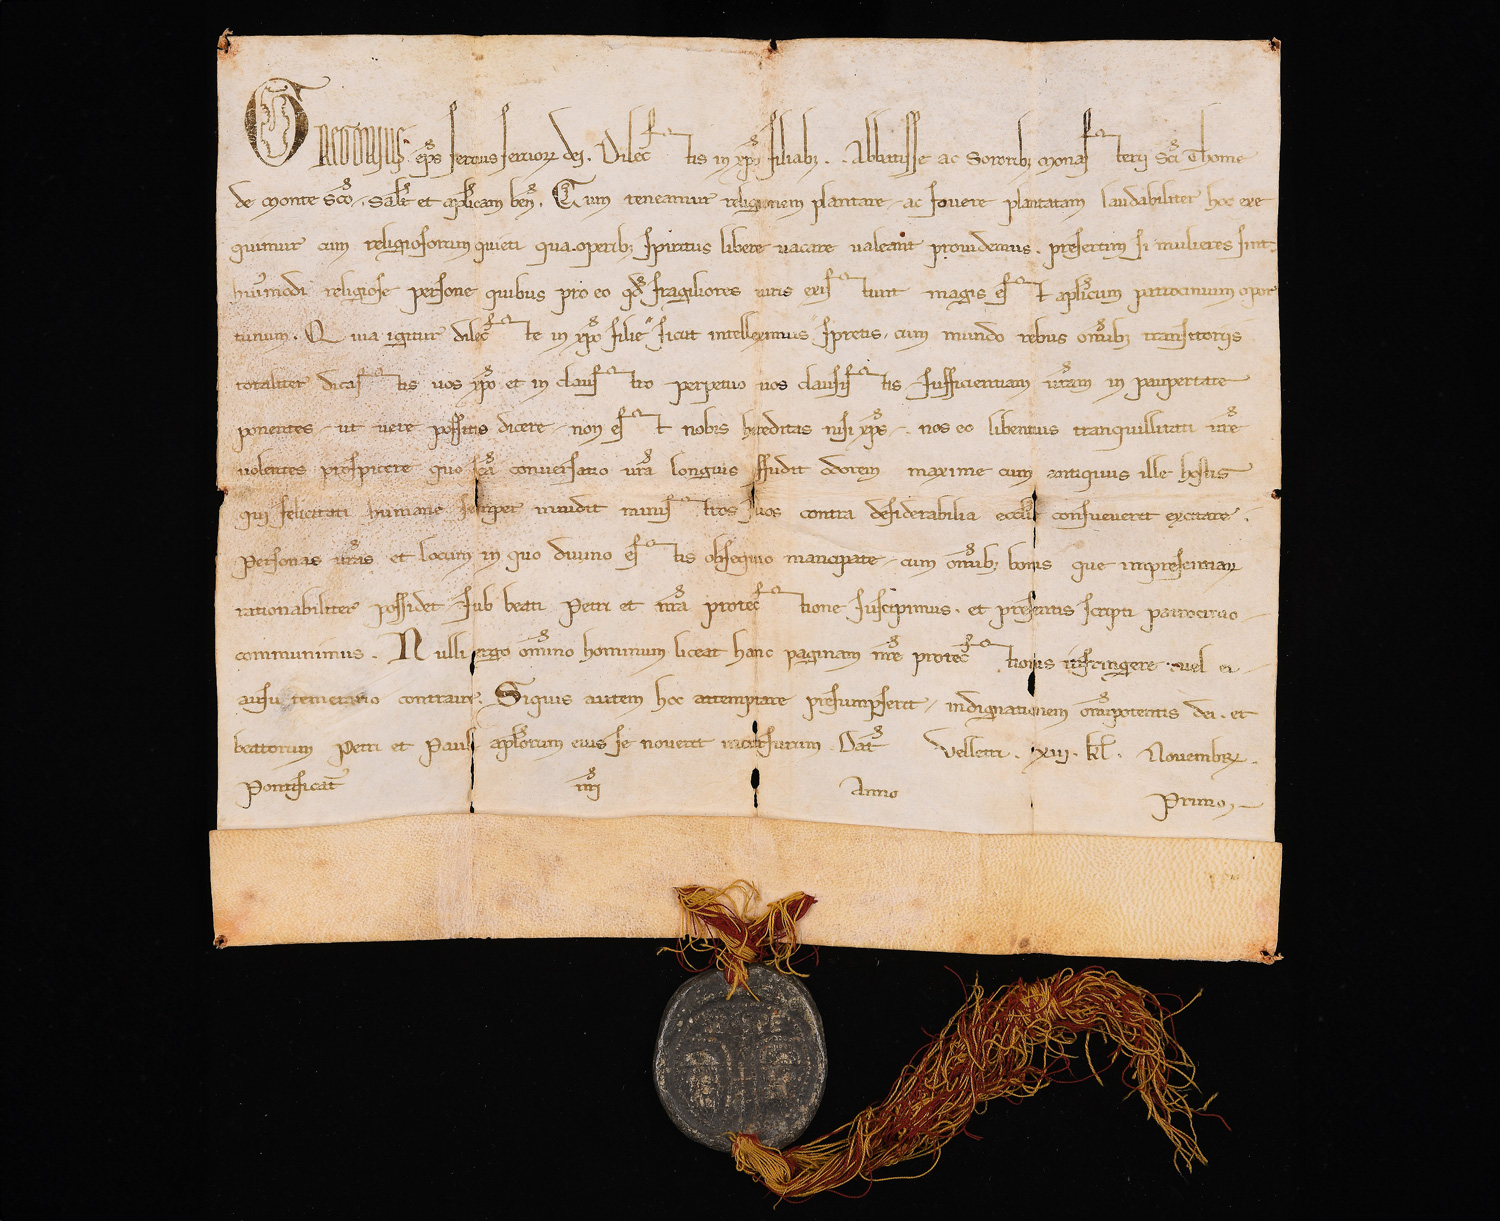 Gregorius ep̄s seruus seruorꝝ dei. Dilectis in xp̄o filiabꝫ .. Abbatisse ac Sororibꝫ monasterii Sc̄i Thome
de Monte Sc̄o, salt̄ et aplīcam ben̄. Cum teneamur religionem plantare, ac fouere plantatam laudabiliter hoc exe
quimur cum religiosorum quieti qua operibꝫ spiritus libere uacare ualeant prouidemus. presertim si mulieres sint
hui᷒modi religiose persone quibus pro eo qđ fragiliores uiris existunt magis est aplīcum patrocinium opor
tunum. Quia igitur dilecte in xp̄o filie sicut intelleximus spretis cum mundo rebus om̄ibꝫ transitoriis
totaliter dicastis uos xp̄o et in claustro perpetuo uos clausistis, sufficientiam ur̄am in paupertate
ponentes, ut uere possitis dicere, non est nobis hereditas nisi xp̄s, nos eo libentius tranquillitati ur̄e
uolentes prospicere quo sc̄a conuersatio ur̄a longius effudit odorem maxime cum antiquus ille hostis
qui felicitati humane semper inuidit ministros suos contra desiderabilia eccl̄ie consueuerit excitare.
Personas ur̄as et locum in quo diuino estis obsequio mancipate, cum om̄ibꝫ bonis que inpresentiarꝝ
rationabiliter possidet sub beati Petri et nr̄a protectione suscipimus, et presentis scripti patrocinio
communimus. Nulli ergo om̄ino hominum liceat hanc paginam nr̄e protectionis infringere uel ei
ausu temerario contraire. Siquis autem hoc attemptare presumpserit, indignationem om̄ipotentis dei et
beatorum Petri et Pauli apl̄orum eius se nouerit incursurum. Dat̄ Velletri . xiii . kl̄ . Nouembrꝝ.
Pontificat̄ nr̄i Anno Primo